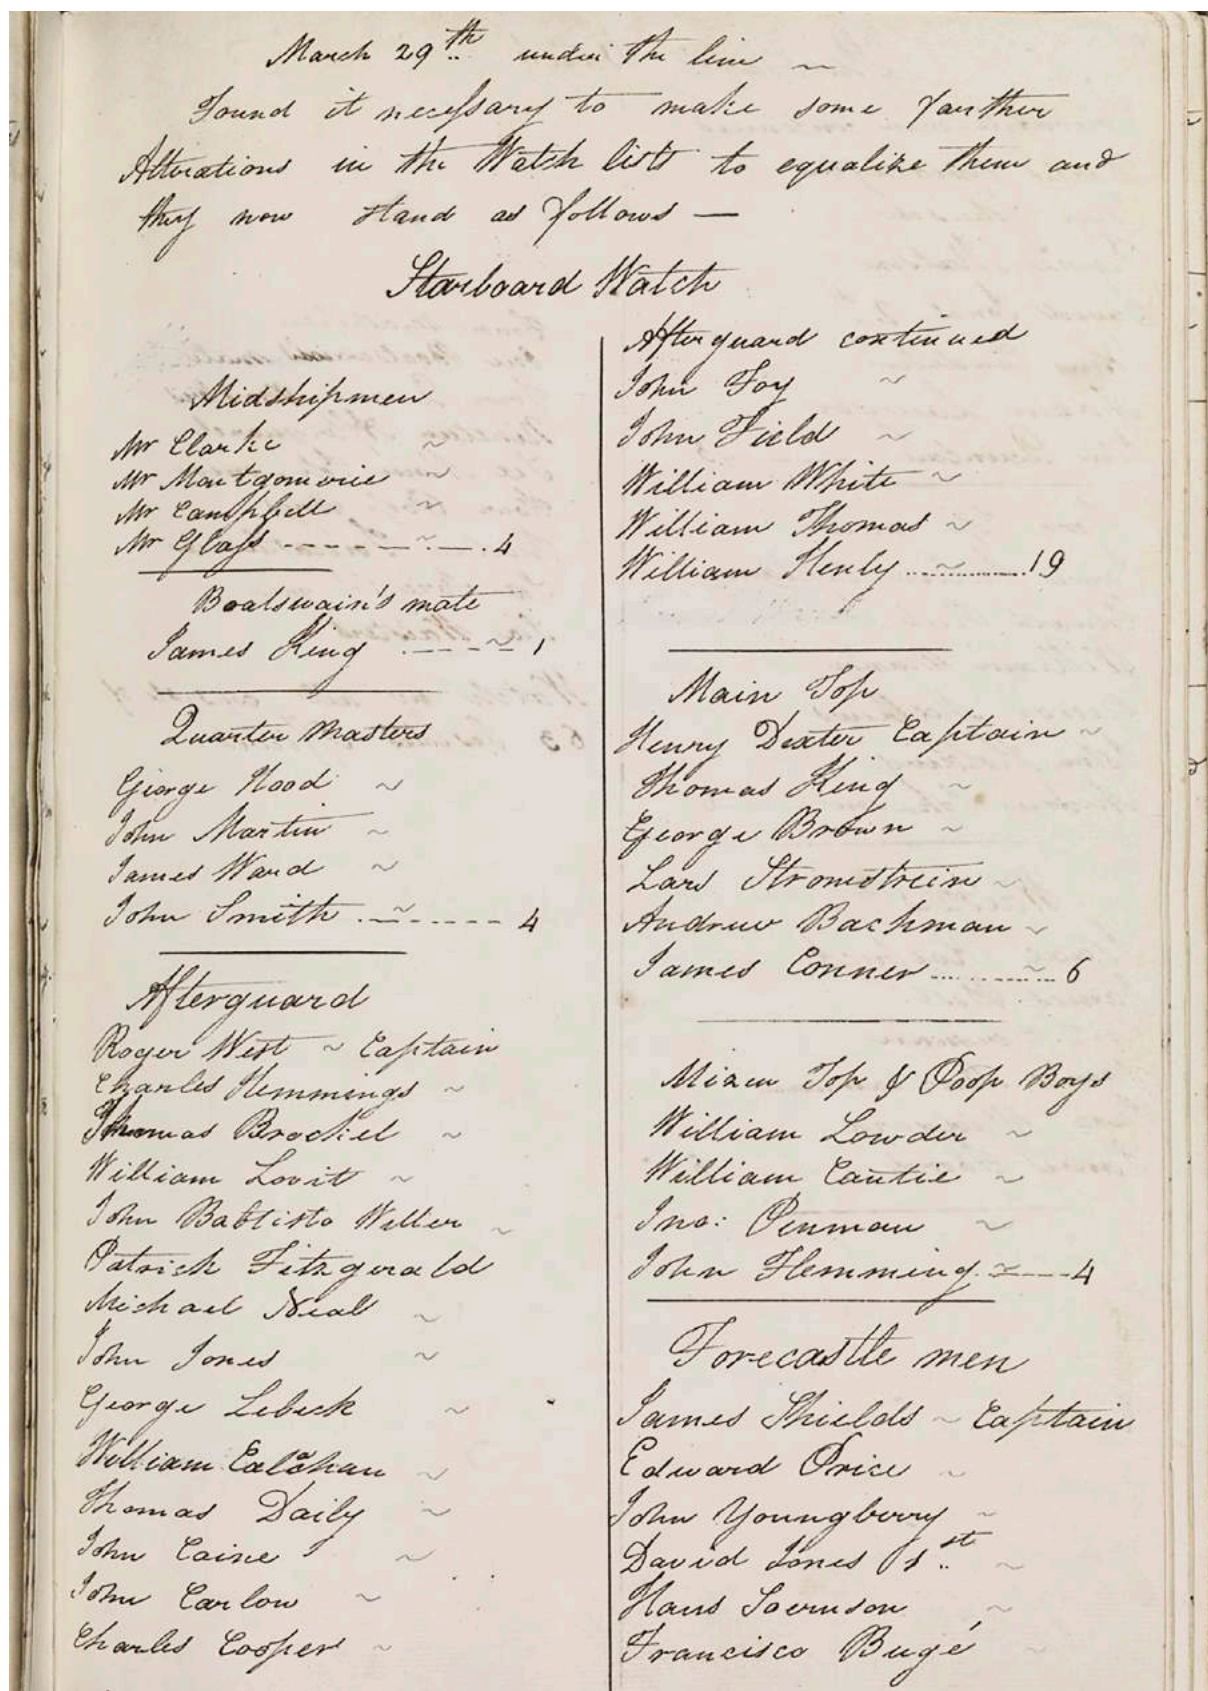 March 29th.. under the line ~
Found it necessary to make some farther
Alterations in the Watch lists to equalize them and
they now stand as follows —
Starboard Watch
Midshipmen
Mr Clarke ~
Mr Montgomerie ~
Mr Campbell ~
Mr Glass - - - - ~ - . 4
Boatswain's mate
James King . - - ~ - 1
Quarter Masters
George Hood ~
John Martin ~
James Ward ~
John Smith . - ~ - - - - - 4
Afterguard
Roger West ~ Captain
Charles Hemmings ~
Thomas Brockel ~
William Lovit ~
John Battisto Willer ~
Patrick Fitzgerald
Michael Neal ~
John Jones ~
George Lebeck ~
William Calahan ~
Thomas Daily ~
John Caine ~
John Carlow ~
Charles Cooper ~
Afterguard continued
John Foy ~
John Field ~
William White ~
William Thomas ~
William Henly ...~........19
Main Top
Henry Dexter Captain ~
Thomas King ~
George Brown ~
Lars Stromstrein ~
Andrew Bachman ~
James Conner .......~... 6
Mizen Top & Poop Boys
William Lowder ~
William Cautie ~
Jno: Penman ~
John Flemming . ~ - - - 4
Forecastle men
James Shields ~ Captain
Edward Price ~
John Youngberry ~
David Jones 1st.. ~
Hans Soernson ~
Francisco Bugé ~